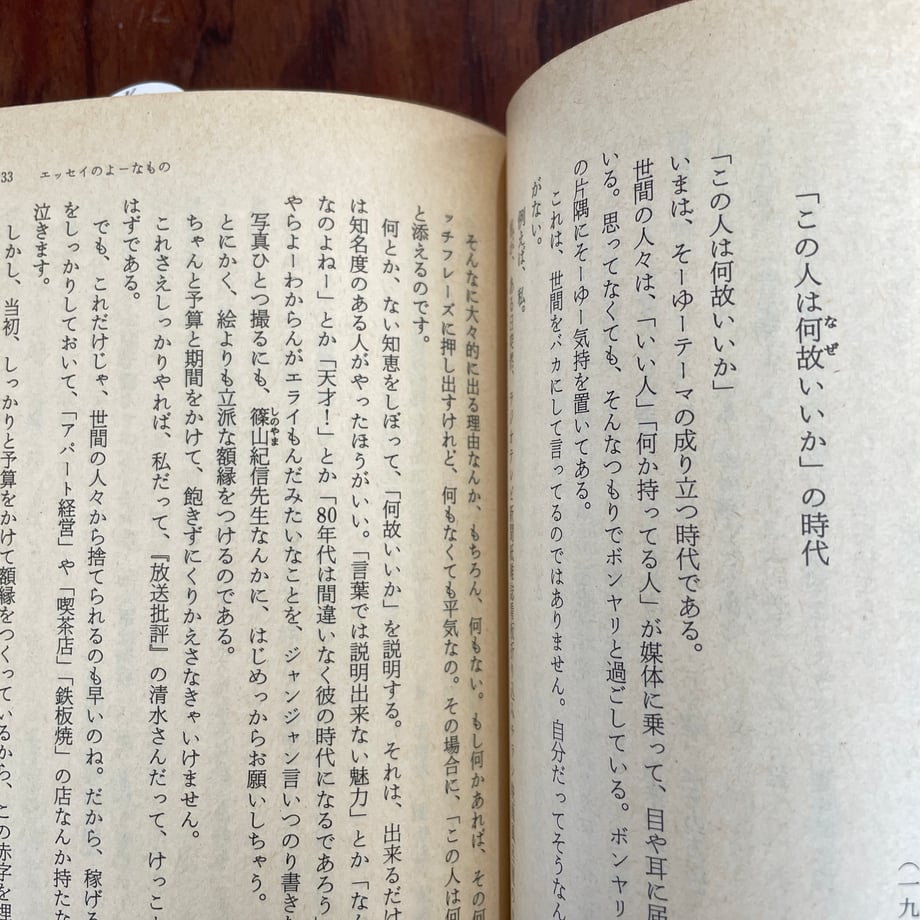 (一九
「この人は何故いいか」の時代
「この人は何故いいか」
いまは、そーゆーテーマの成り立つ時代である。
世間の人々は、「いい人」「何か持ってる人」が媒体に乗って、目や耳に届
いる。思ってなくても、そんなつもりでボンヤリと過ごしている。ボンヤリ
の片隅にそーゆー気持を置いてある。
これは、世間をバカにして言ってるのではありません。自分だってそうなん
がない。
例えば、私。
33 エッセイのよーなもの
そんなに大々的に出る理由なんか、もちろん、何もない。もし何かあれば、その何
ッチフレーズに押し出すけれど、何もなくても平気なの。その場合に、「この人は何
と添えるのです。
何とか、ない知恵をしぼって、「何故いいか」を説明する。それは、出来るだけ
は知名度のある人がやったほうがいい。「言葉では説明出来ない魅力」とか「なん
なのよねー」とか「天才!」とか「80年代は間違いなく彼の時代になるであろう」
やらよーわからんがエライもんだみたいなことを、ジャンジャン言いつのり書き
写真ひとつ撮るにも、篠山紀信先生なんかに、はじめっからお願いしちゃう。
とにかく、絵よりも立派な額縁をつけるのである。
ちゃんと予算と期間をかけて、飽きずにくりかえさなきゃいけません。
これさえしっかりやれば、私だって、『放送批評』の清水さんだって、けっこ
はずである。
でも、これだけじゃ、世間の人々から捨てられるのも早いのね。だから、稼げる
をしっかりしておいて、「アパート経営」や「喫茶店」「鉄板焼」の店なんか持たな
泣きます。
しかし、当初、しっかりと予算をかけて額縁をつくっているから、この赤字を埋